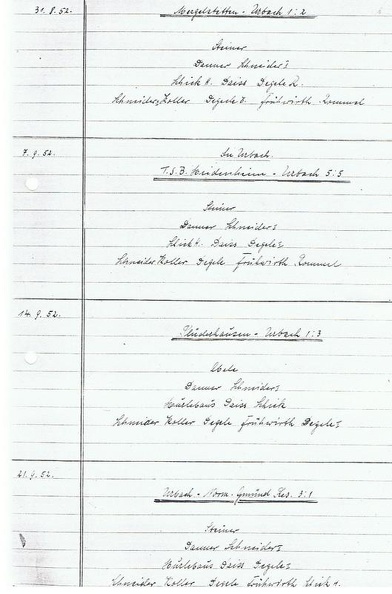 31.8.52. Mergelstetten - Urbach 1:2
Steiner
Danner Schneider
Schick A. Daiss Degele R.
Schneider, Koller Degele J. Frühwirth Rommel
7.9.52. In Urbach
T.S.B. Heidenheim - Urbach 5:5
Steiner
Danner Schneider
Schick A. Daiss Degele
Schneider Koller Degele Frühwirth Rommel
14.9.52. Plüderhausen - Urbach 1:3
Ebele
Danner Schneider
Daiss Schick
Schneider Koller Degele Frühwirth Degele
21.9.52. Urbach - Norm. Gmünd Res. 3:1
Steiner
Danner Schneider
Daiss Degele
Schneider Koller Degele Frühwirth Schick A.